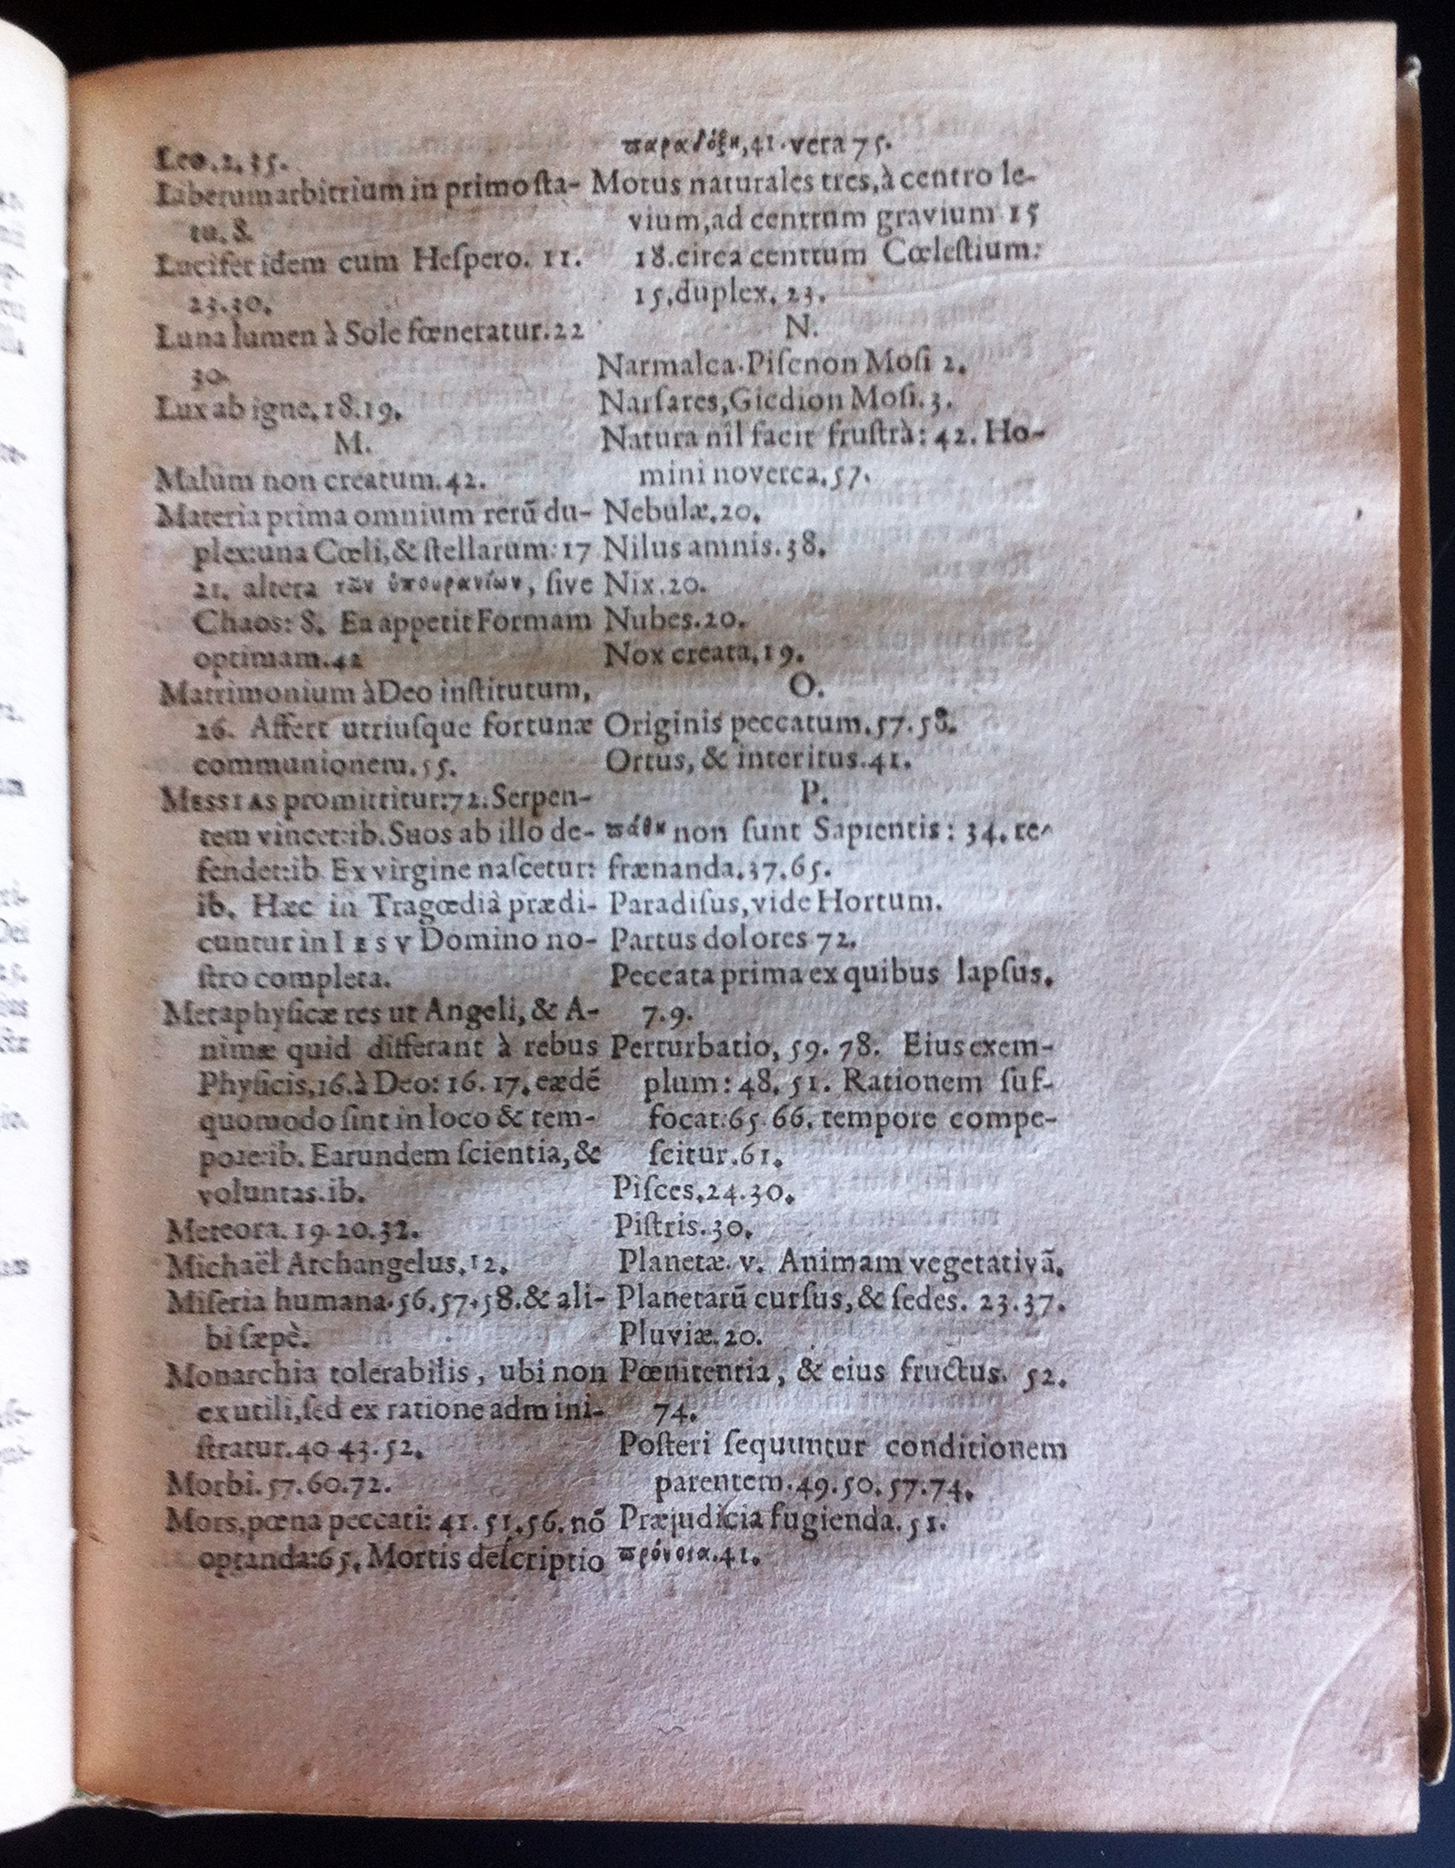 Leo.2.35.
Liberum arbitrium in primo ſta-
tu.8.
Lucifer idem cum Heſpero. 11.
23.30.
Luna lumen à Sole fœneratur.22
30.
Lux ab igne.18.19.
M.
Malum non creatum.42.
Materia prima omnium rerũ du-
plex:una Cœli,& ſtellarum: 17
21. altera τῶν ὑπουρανίων, ſive
Chaos: 8. Ea appetit Formam
optimam.42
Matrimonium à Deo inſtitutum,
26. Affert utriuſque fortunæ
communionem.55.
MESSIAS promittitur:72.Serpen-
tem vincet:ib.Suos ab illo de-
fendet:ib Ex virgine naſcetur:
ib. Hæc in Tragœdiâ prædi-
cuntur in IESV Domino no-
ſtro completa.
Metaphyſicæ res ut Angeli, & A-
nimæ quid differant à rebus
Phyſicis,16.à Deo: 16. 17. eædẽ
quomodo ſint in loco & tem-
pore:ib. Earundem ſcientia, &
voluntas.ib.
Meteora. 19.20.32.
Michaël Archangelus.12.
Miſeria humana.56.57.58.& ali-
bi ſæpè.
Monarchia tolerabilis, ubi non
ex utili,ſed ex ratione admini-
ſtratur.40 43.52.
Morbi.57.60.72.
Mors,pœna peccati: 41.51.56. nõ
optanda:65. Mortis deſcriptio
παραδόξη,41.vera 75.
Motus naturales tres,à centro le-
vium,ad centrum gravium 15
18.circa centrum Cœleſtium:
15.duplex. 23.
N.
Narmalca.Piſcnon Moſi 2.
Narſares,Giedion Moſi.3.
Natura nil facit fruſtrà: 42. Ho-
mini noverca.57.
Nebulæ.20.
Nilus amnis.38.
Nix.20.
Nubes.20.
Nox creata,19.
O.
Originis peccatum.57.58.
Ortus, & interitus.41.
P.
πάθη non ſunt Sapientis: 34. re-
frænanda.37.65.
Paradiſus,vide Hortum.
Partus dolores 72.
Peccata prima ex quibus lapſus.
7.9.
Perturbatio, 59. 78. Eius exem-
plum: 48. 51. Rationem ſuf-
focat:65 66. tempore compe-
ſcitur.61.
Piſces.24.30.
Piſtris.30.
Planetæ. v. Animam vegetativã.
Planetarũ curſus,& ſedes. 23.37.
Pluviæ.20.
Pœnitentia, & eius fructus. 52.
74.
Poſteri ſequuntur conditionem
parentem.49.50.57.74.
Præjudicia fugienda.51.
πρόνοια.41.